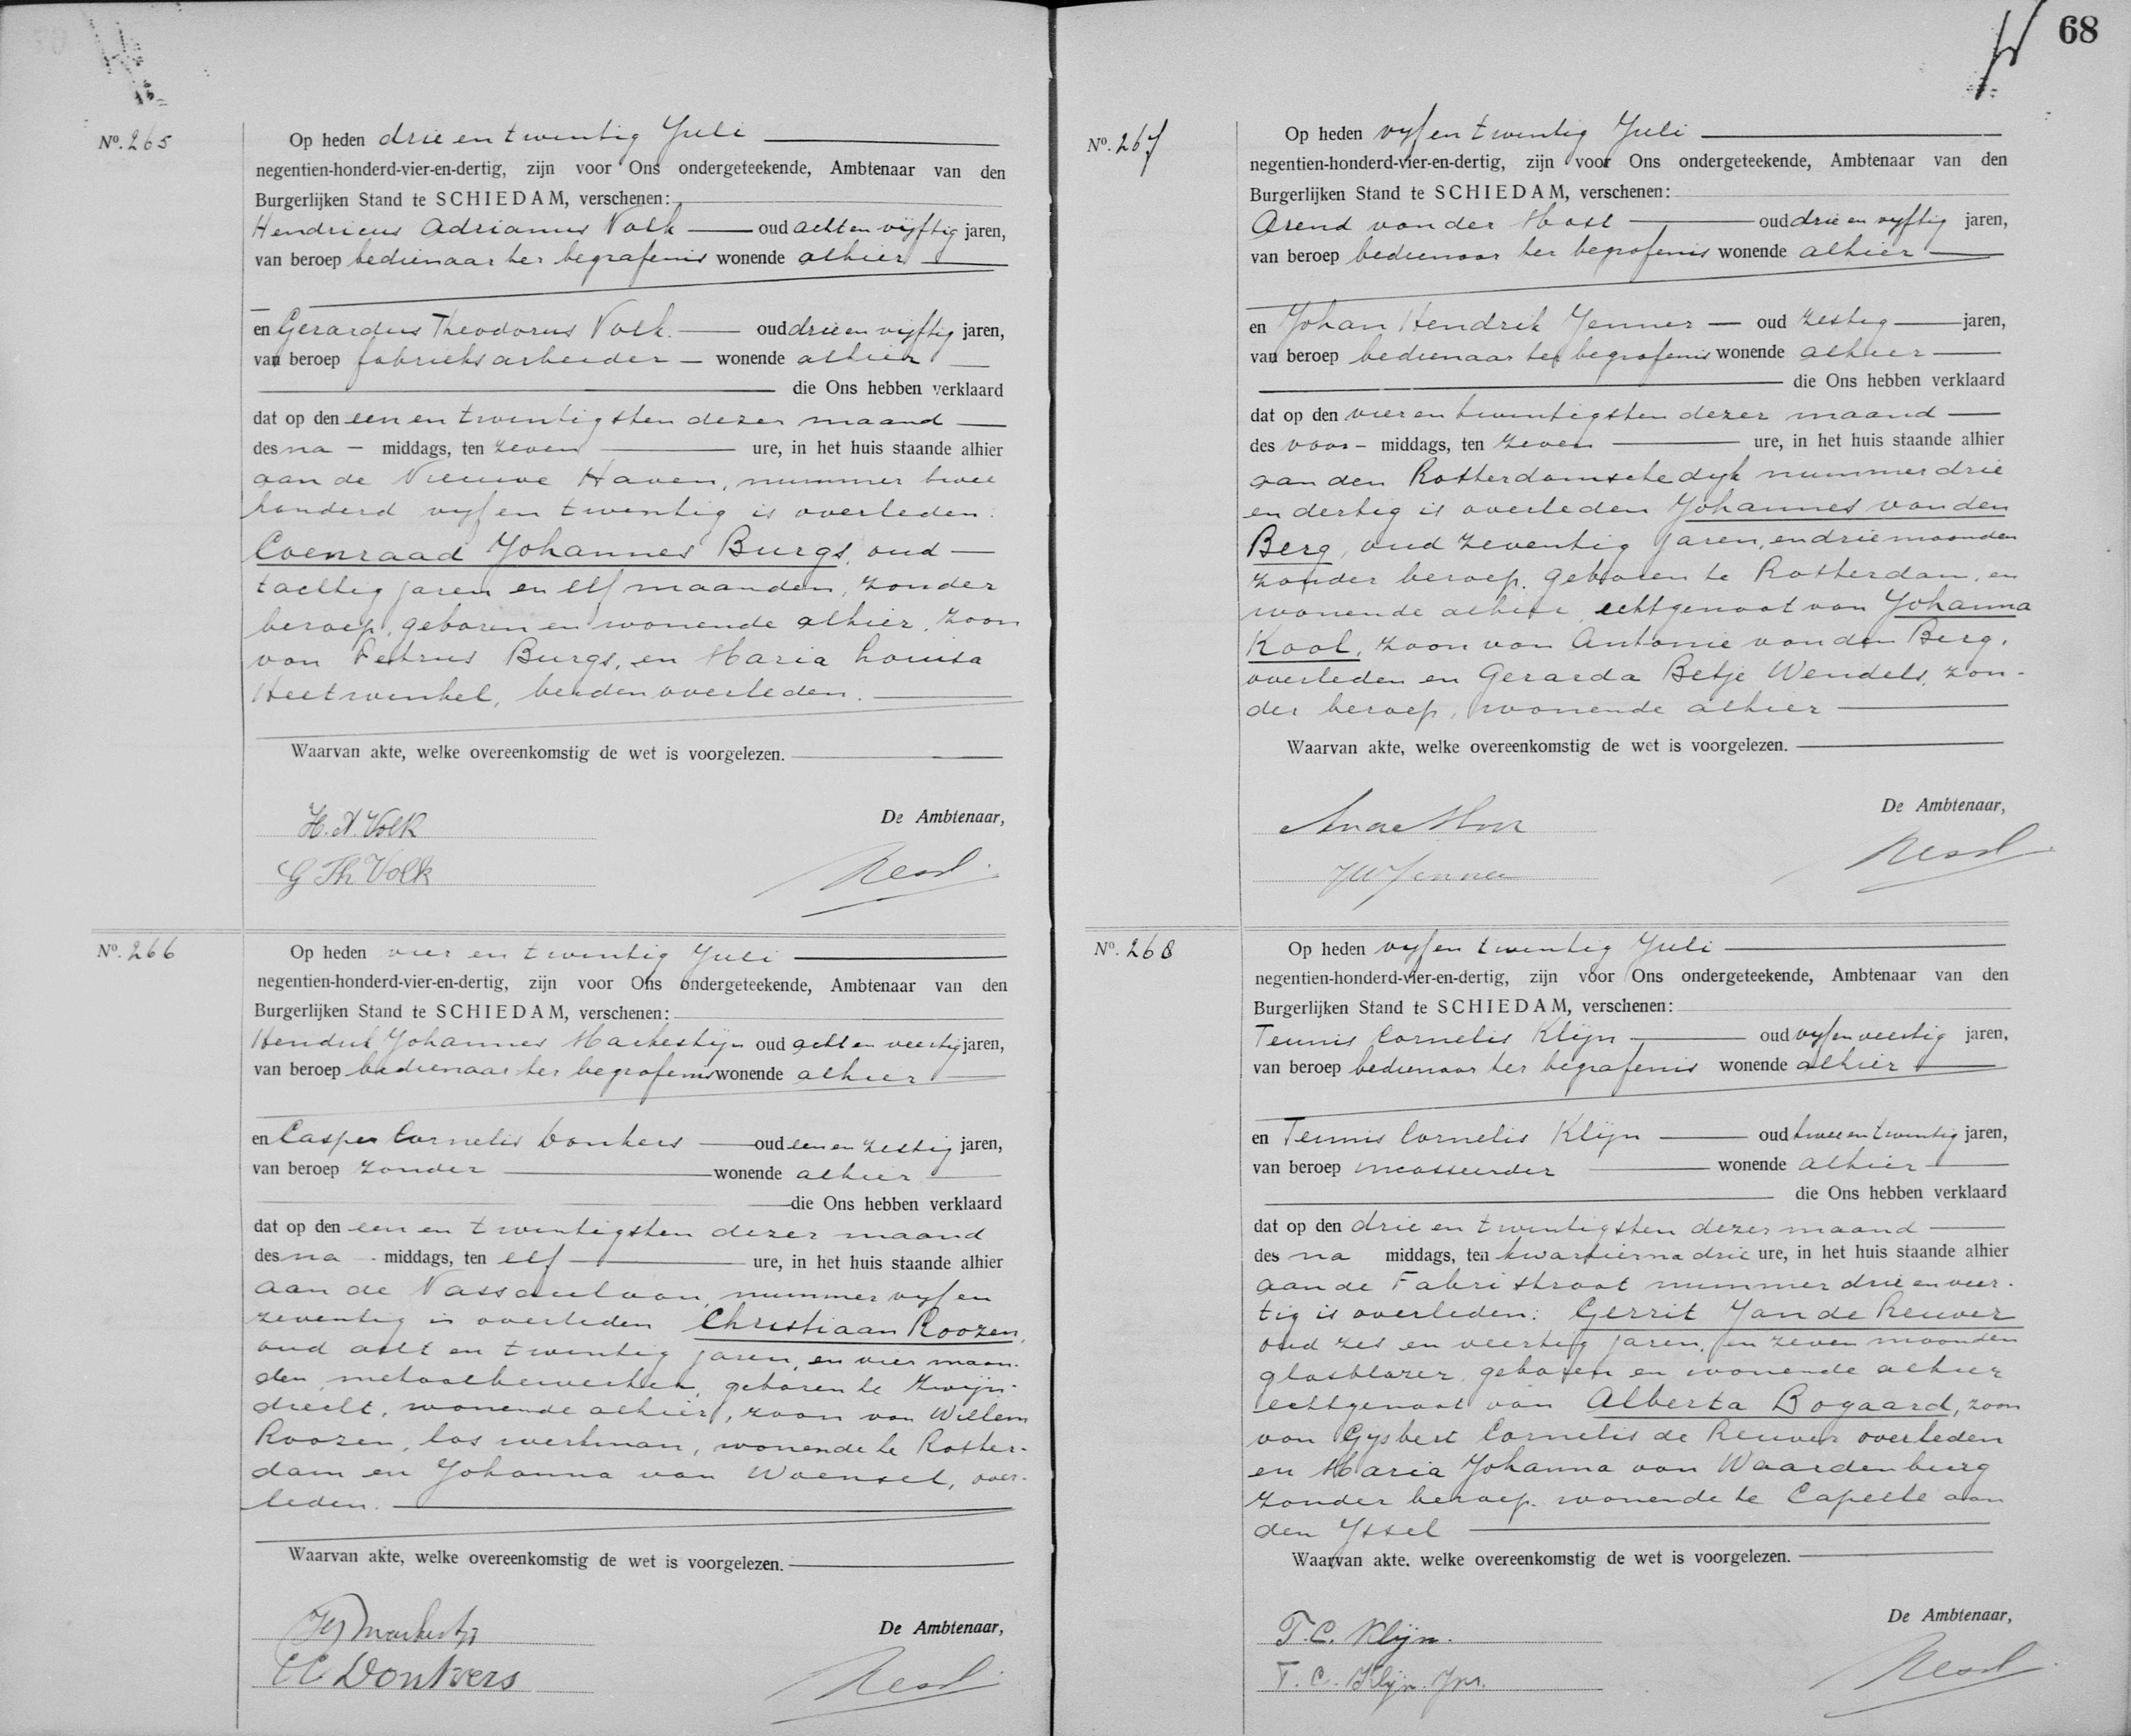 68
No. 265
Op heden drie en twintig Juli
negentien-honderd-vier-en-dertig, zijn voor Ons ondergeteekende, Ambtenaar van den
Burgerlijken Stand te SCHIEDAM, verschenen:
Hendricus Adrianus Volk oud acht en vijftig jaren,
van beroep bedienaar ter begrafenis wonende alhier
en Gerardus Theodorus Volk oud drie en vijftig jaren,
van beroep fabrieksarbeider wonende alhier
die Ons hebben verklaard
dat op den een en twintigsten dezer maand
des na middags, ten zeven ure, in het huis staande alhier
aan de Nieuwe Haven, nummer twee
honderd vyf en twintig is overleden:
Coenraad Johannes Burgs, oud
tachtig jaren en elf maanden, zonder
beroep, geboren en wonende alhier, zoon
van Petrus Burgs, en Maria Louisa
Heetwinkel, beiden overleden.
Waarvan akte, welke overeenkomstig de wet is voorgelezen.
De Ambtenaar,
H. A. Volk
G Th Volk
No. 266
Op heden vier en twintig Juli
negentien-honderd-vier-en-dertig, zijn voor Ons ondergeteekende, Ambtenaar van den
Burgerlijken Stand te SCHIEDAM, verschenen:
Hendrik Johannes Markestijn oud acht en veertig jaren,
van beroep bedienaar ter begrafenis wonende alhier
en Casper Cornelis Donkers oud een en zestig jaren,
van beroep zonder wonende alhier
die Ons hebben verklaard
dat op den een en twintigsten dezer maand
des na middags, ten elf ure, in het huis staande alhier
aan de Nassaulaan, nummer vyf en
zeventig is overleden Christiaan Roozen,
oud acht en twintig jaren, en vier maan-
den, metaalbewerker, geboren te Zwijn-
drecht, wonende alhier, zoon van Willem
Roozen, los werkman, wonende te Rotter-
dam en Johanna van Woensel, over-
leden.
Waarvan akte, welke overeenkomstig de wet is voorgelezen.
De Ambtenaar,
HJ Markestijn
CC Donkers
No. 267
Op heden vyf en twintig Juli
negentien-honderd-vier-en-dertig, zijn voor Ons ondergeteekende, Ambtenaar van den
Burgerlijken Stand te SCHIEDAM, verschenen:
Arend van der Mast oud drie en vyftig jaren,
van beroep bedienaar ter begrafenis wonende alhier
en Johan Hendrik Jenner oud zestig jaren,
van beroep bedienaar ter begrafenis wonende alhier
die Ons hebben verklaard
dat op den vier en twintigsten dezer maand
des voor- middags, ten zeven ure, in het huis staande alhier
aan den Rotterdamschedyk nummer drie
en dertig is overleden Johannes van den
Berg, oud zeventig jaren, en drie maanden
zonder beroep. geboren te Rotterdam, en
wonende alhier, echtgenoot van Johanna
Kool, zoon van Antonie van den Berg,
overleden en Gerarda Betje Wendels, zon-
der beroep, wonende alhier
Waarvan akte, welke overeenkomstig de wet is voorgelezen.
De Ambtenaar,
No. 268
Op heden vyf en twintig Juli
negentien-honderd-vier-en-dertig, zijn voor Ons ondergeteekende, Ambtenaar van den
Burgerlijken Stand te SCHIEDAM, verschenen:
Teunis Cornelis Klijn oud vyf en veertig jaren,
van beroep bedienaar ter begrafenis wonende alhier
en Teunis Cornelis Klijn oud twee en twintig jaren,
van beroep incasseerder wonende alhier
die Ons hebben verklaard
dat op den drie en twintigsten dezer maand
des na middags, ten kwartier na drie ure, in het huis staande alhier
aan de Fabristraat nummer drie en veer-
tig is overleden: Gerrit Jan de Reuver
oud zes en veertig jaren, en zeven maanden
glasblazer, geboren en wonende alhier
echtgenoot van Alberta Bogaard, zoon
van Gysbert Cornelis de Reuver overleden
en Maria Johanna van Waardenburg
zonder beroep. wonende te Capelle aan
den Yssel
Waarvan akte, welke overeenkomstig de wet is voorgelezen.
De Ambtenaar,
T. C. Klijn.
T. C. Klijn. Jnr.